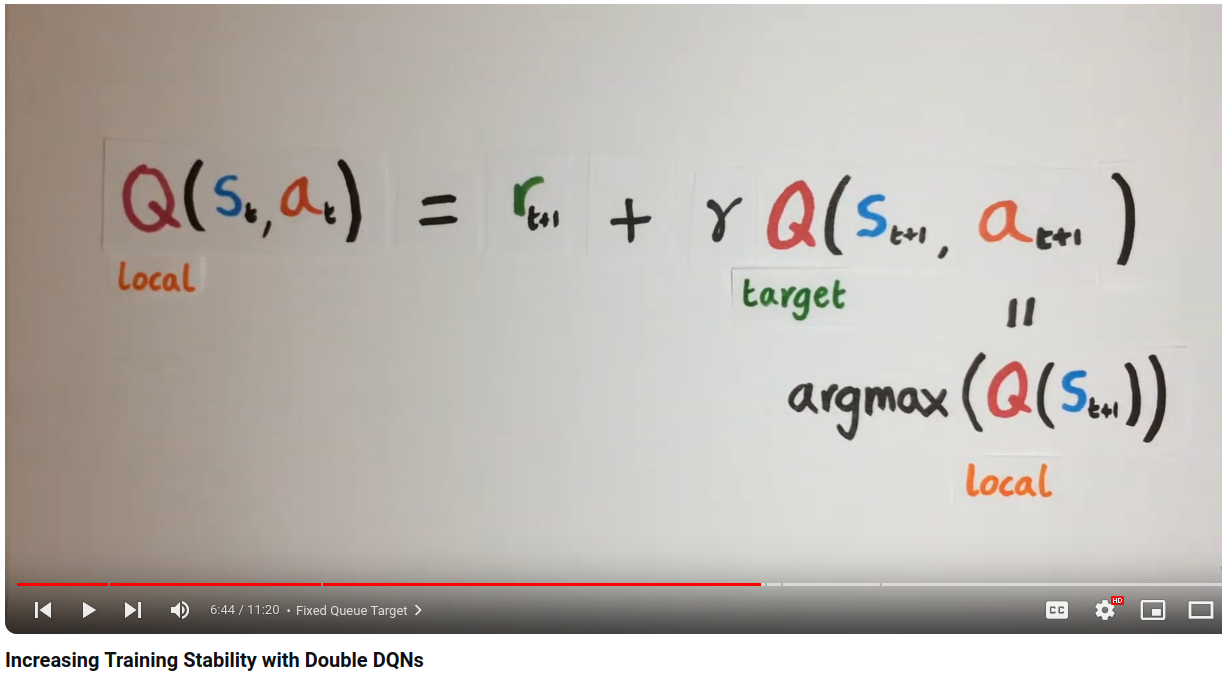 Q(sₜ, aₜ) = rₜ₊₁ + γ Q(sₜ₊₁, aₜ₊₁)
local
target
=
argmax(Q(sₜ₊₁))
local
6:44 / 11:20 • Fixed Queue Target >
CC
HD
Increasing Training Stability with Double DQNs